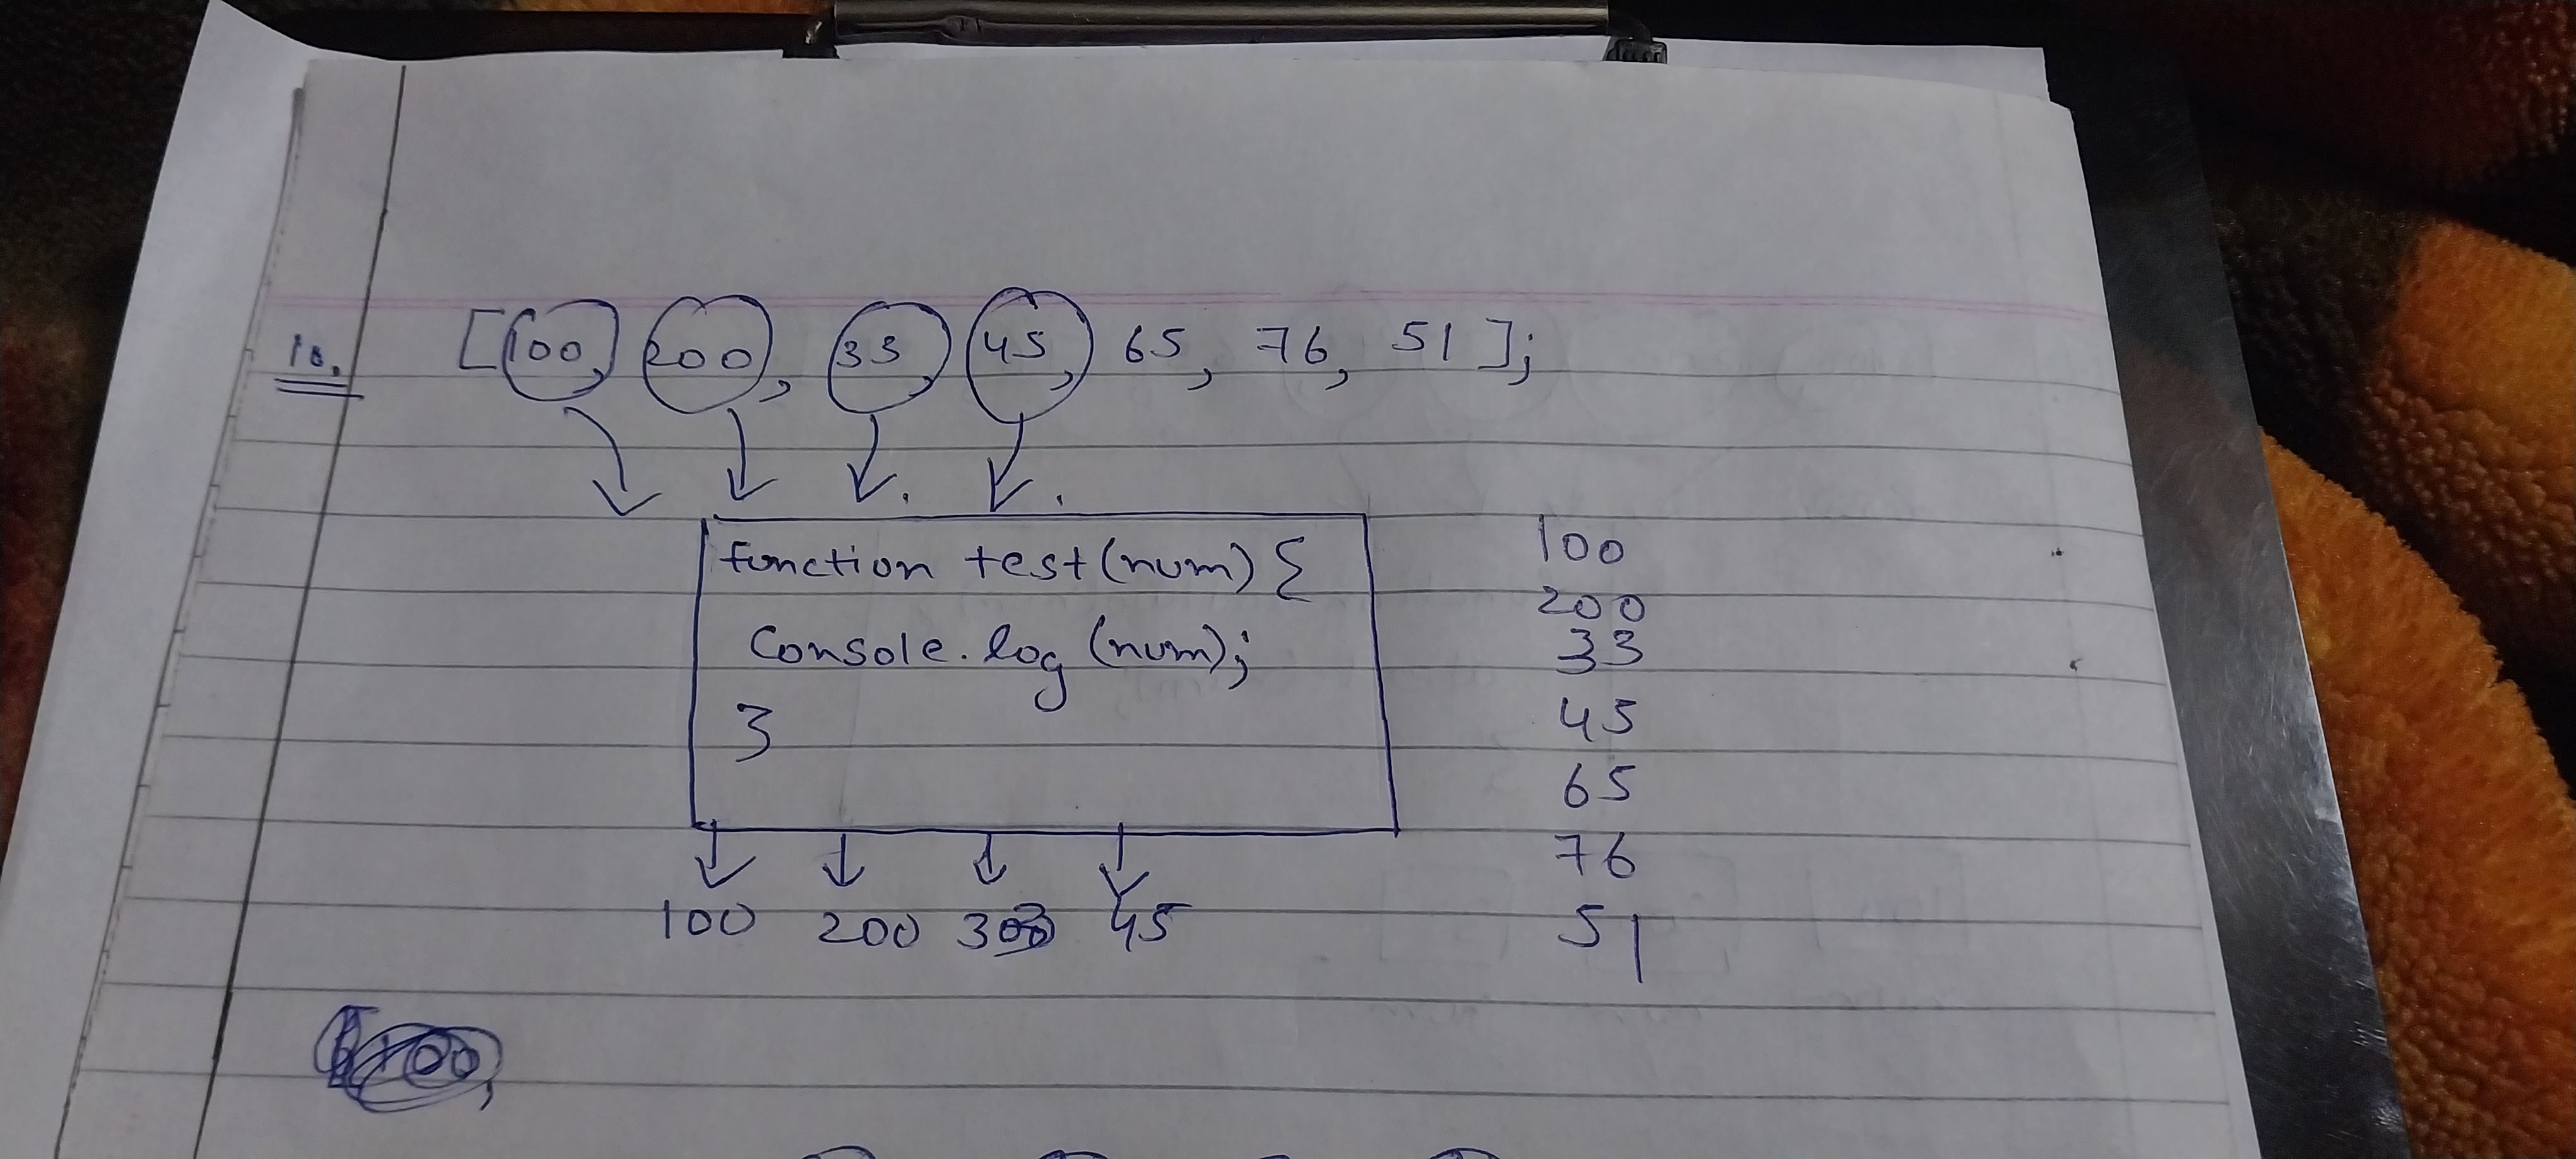 10.
[100, 200, 33, 45, 65, 76, 51];
function test(num) {
Console.log(num);
}
100 200 33 45
100
200
33
45
65
76
51